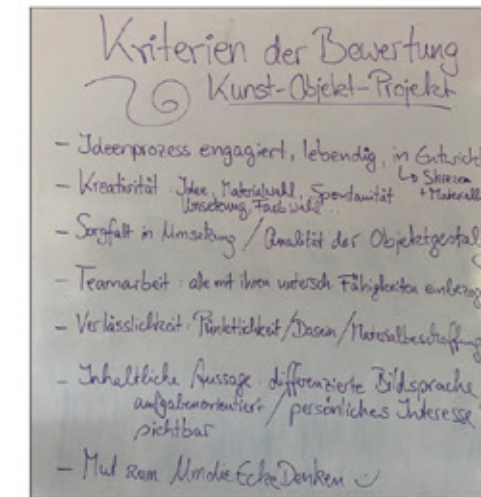 Kriterien der Bewertung
Kunst-Objekt-Projekt
- Ideenprozess engagiert, lebendig, in
↳ Skizzen
- Kreativität: Idee, Materialwahl, Spontanität + Material
Umsetzung, Farbwahl...
- Sorgfalt in Umsetzung / Qualität der Objektgestal
- Teamarbeit: alle mit ihren untersch. Fähigkeiten einbezog
- Verlässlichkeit: Pünktlichkeit/Dasein/Materialbeschaffung
- Inhaltliche Aussage: differenzierte Bildsprache
aufgabenorientiert / persönliches Interesse
sichtbar
- Mut zum UmdieEckeDenken